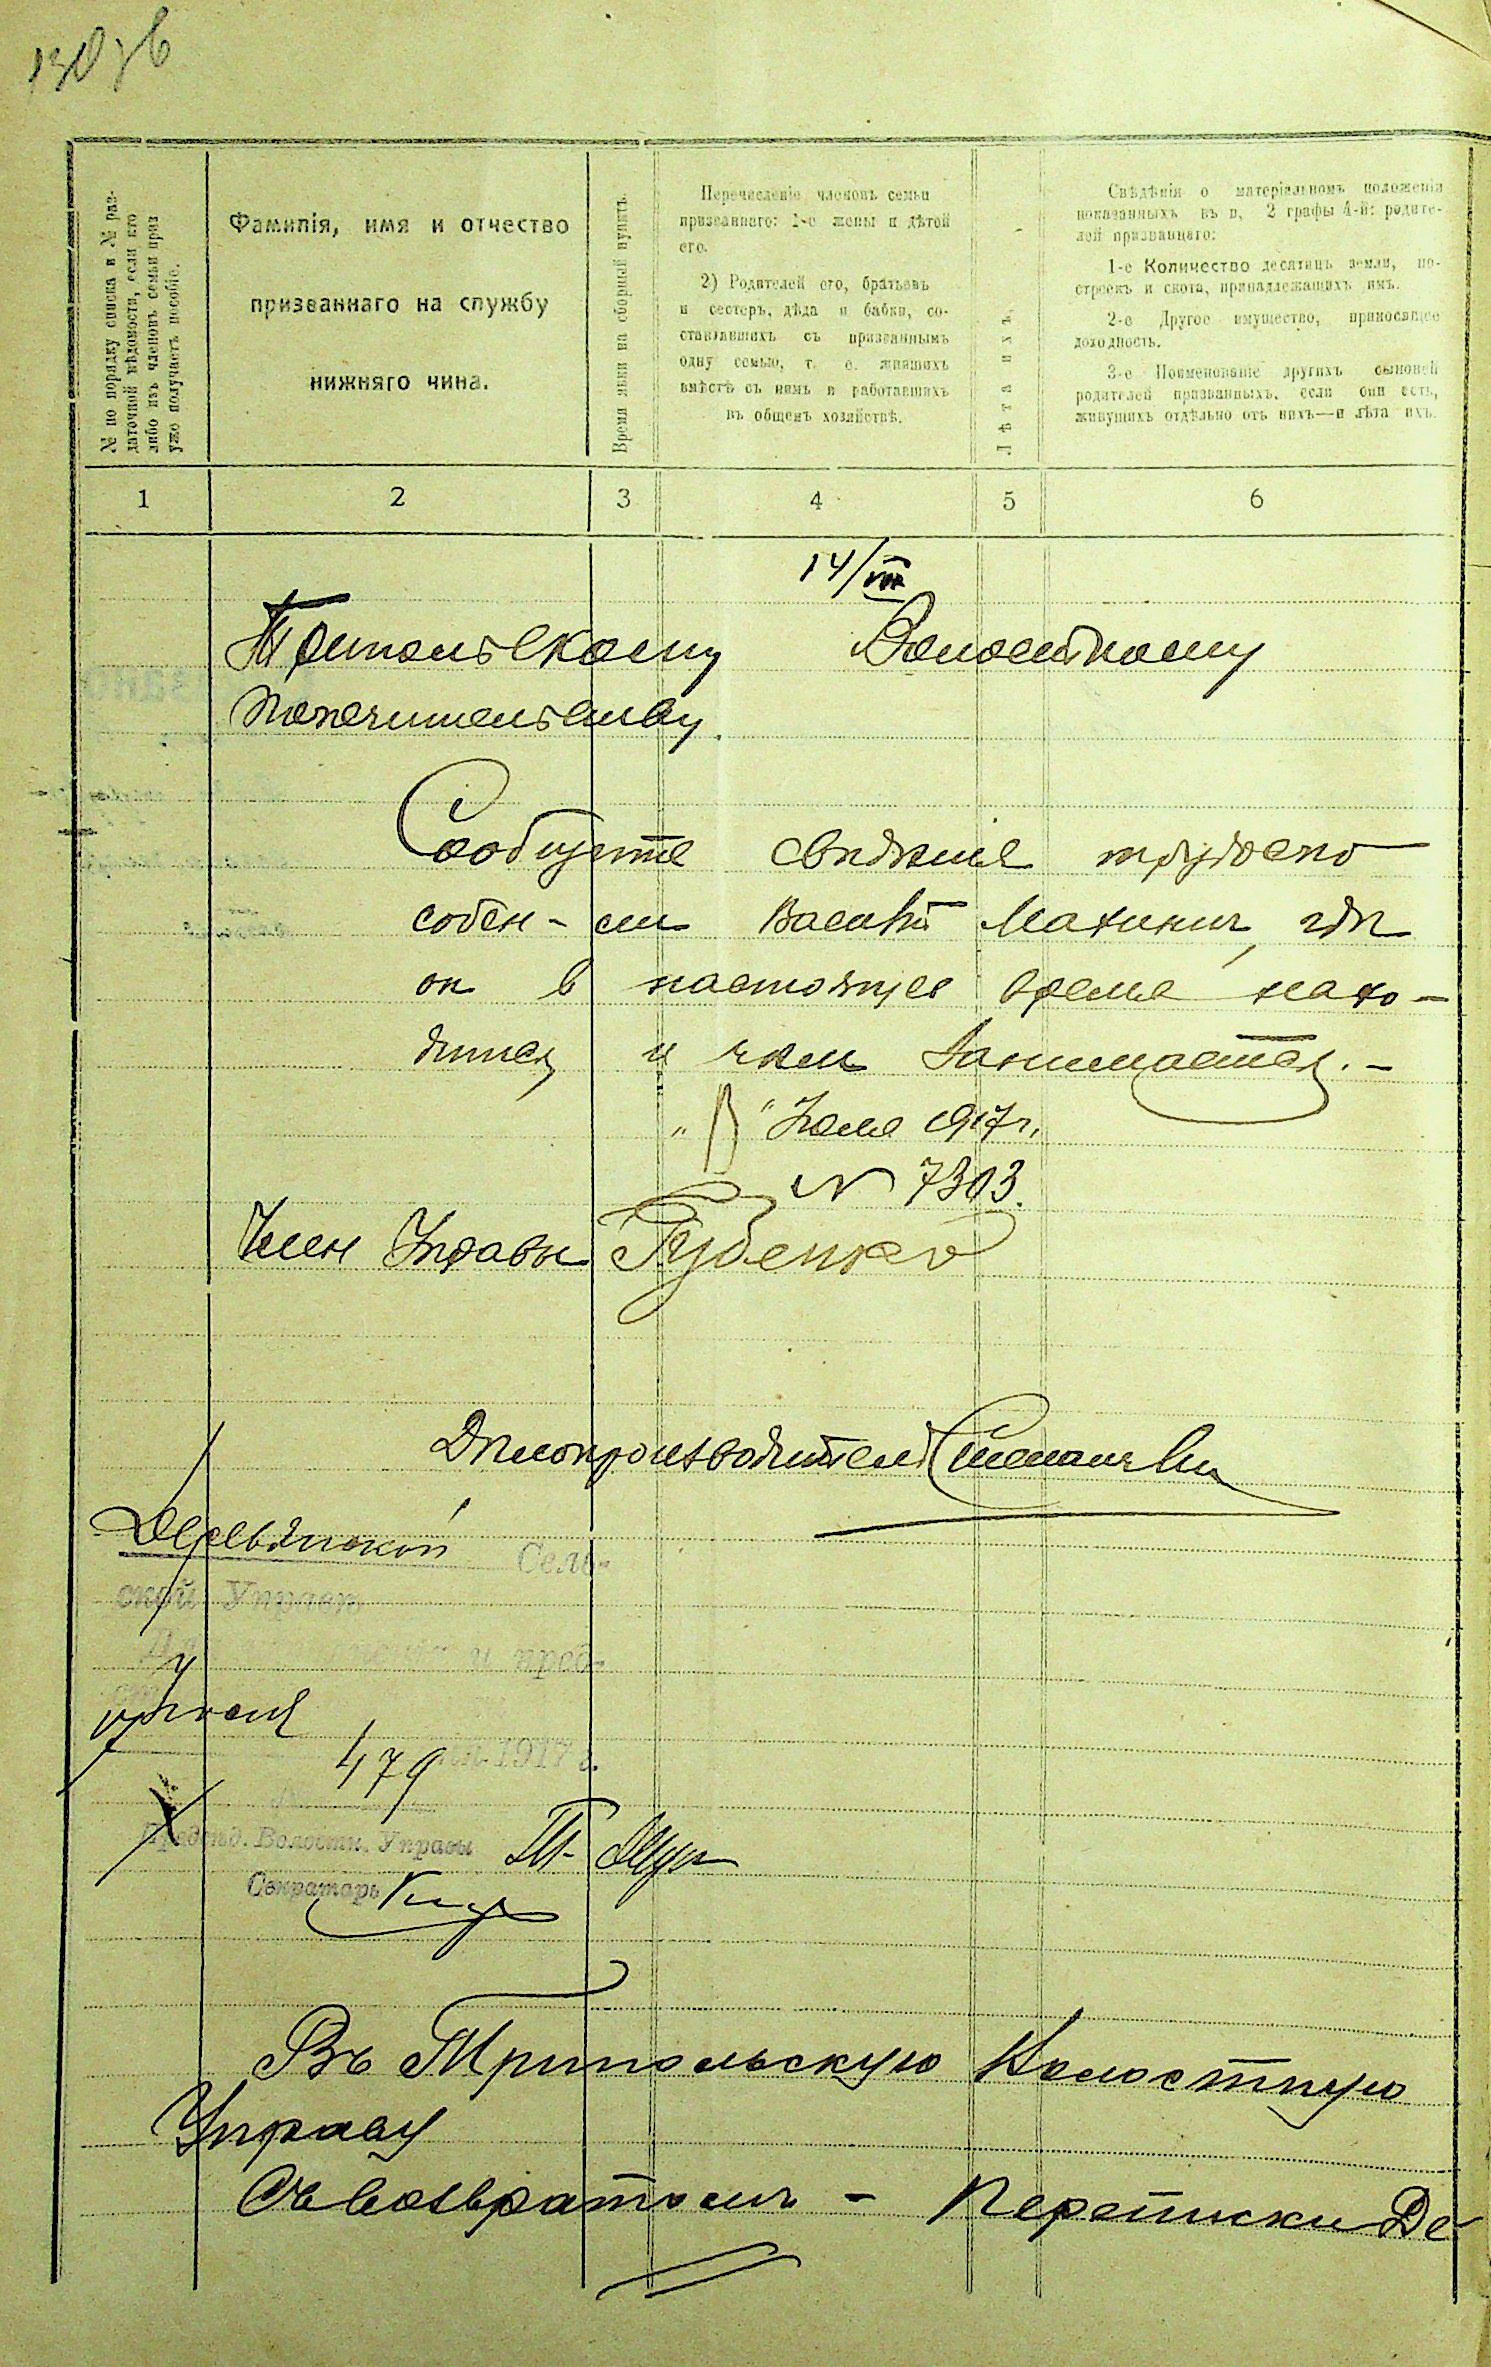 № по порядку списка и № раз-
даточной вѣдомости, если кто
либо изъ членовъ семьи приз
уже получаетъ пособіе.
Фамилія, имя и отчество
призваннаго на службу
нижняго чина.
Время явки на сборный пунктъ.
Перечисленіе членовъ семьи
призваннаго: 1-е жены и дѣтей
его.
2) Родителей его, братьевъ
и сестеръ, дѣда и бабки, со-
ставлявшихъ съ призваннымъ
одну семью, т. е. жившихъ
вмѣстѣ съ нимъ и работавшихъ
въ общемъ хозяйствѣ.
Лѣта ихъ.
Свѣдѣнія о матеріальномъ положеніи
показанныхъ въ п, 2 графы 4-й: родите-
лей призваннаго:
1-е Количество десятинъ земли, по-
строекъ и скота, принадлежащихъ имъ.
2-е Другое имущество, приносящее
доходность.
3-е Поименованіе другихъ сыновей
родителей призванныхъ, если они есть,
живущихъ отдѣльно отъ нихъ—и лѣта ихъ.
1 2 3 4 5 6
14/VII
Трипольскому Волостному
Попечительству.
Сообщите свѣдѣнія трудоспо
собен- Василій где
он в настоящее время нахо-
дится и чѣм занимается. -
" " Июля 1917 г.
N 7303.
Член Управы Губенко
Дѣлопроизводитель
Деревянской Сель-
ской Управѣ
и пред-
Июля
479 1917 г.
Предсѣд. Волостн. Управы
Секретарь
Въ Трипольскую Волостную
Управу
Съ возвратомъ - переписки Де